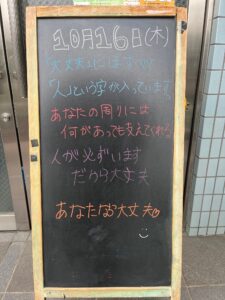 10月16日(木)
「大丈夫」にはすべて
「人」という字が入っています
あなたの周りには
何があっても支えてくれる
人が必ずいます
だから大丈夫
あなたなら大丈夫